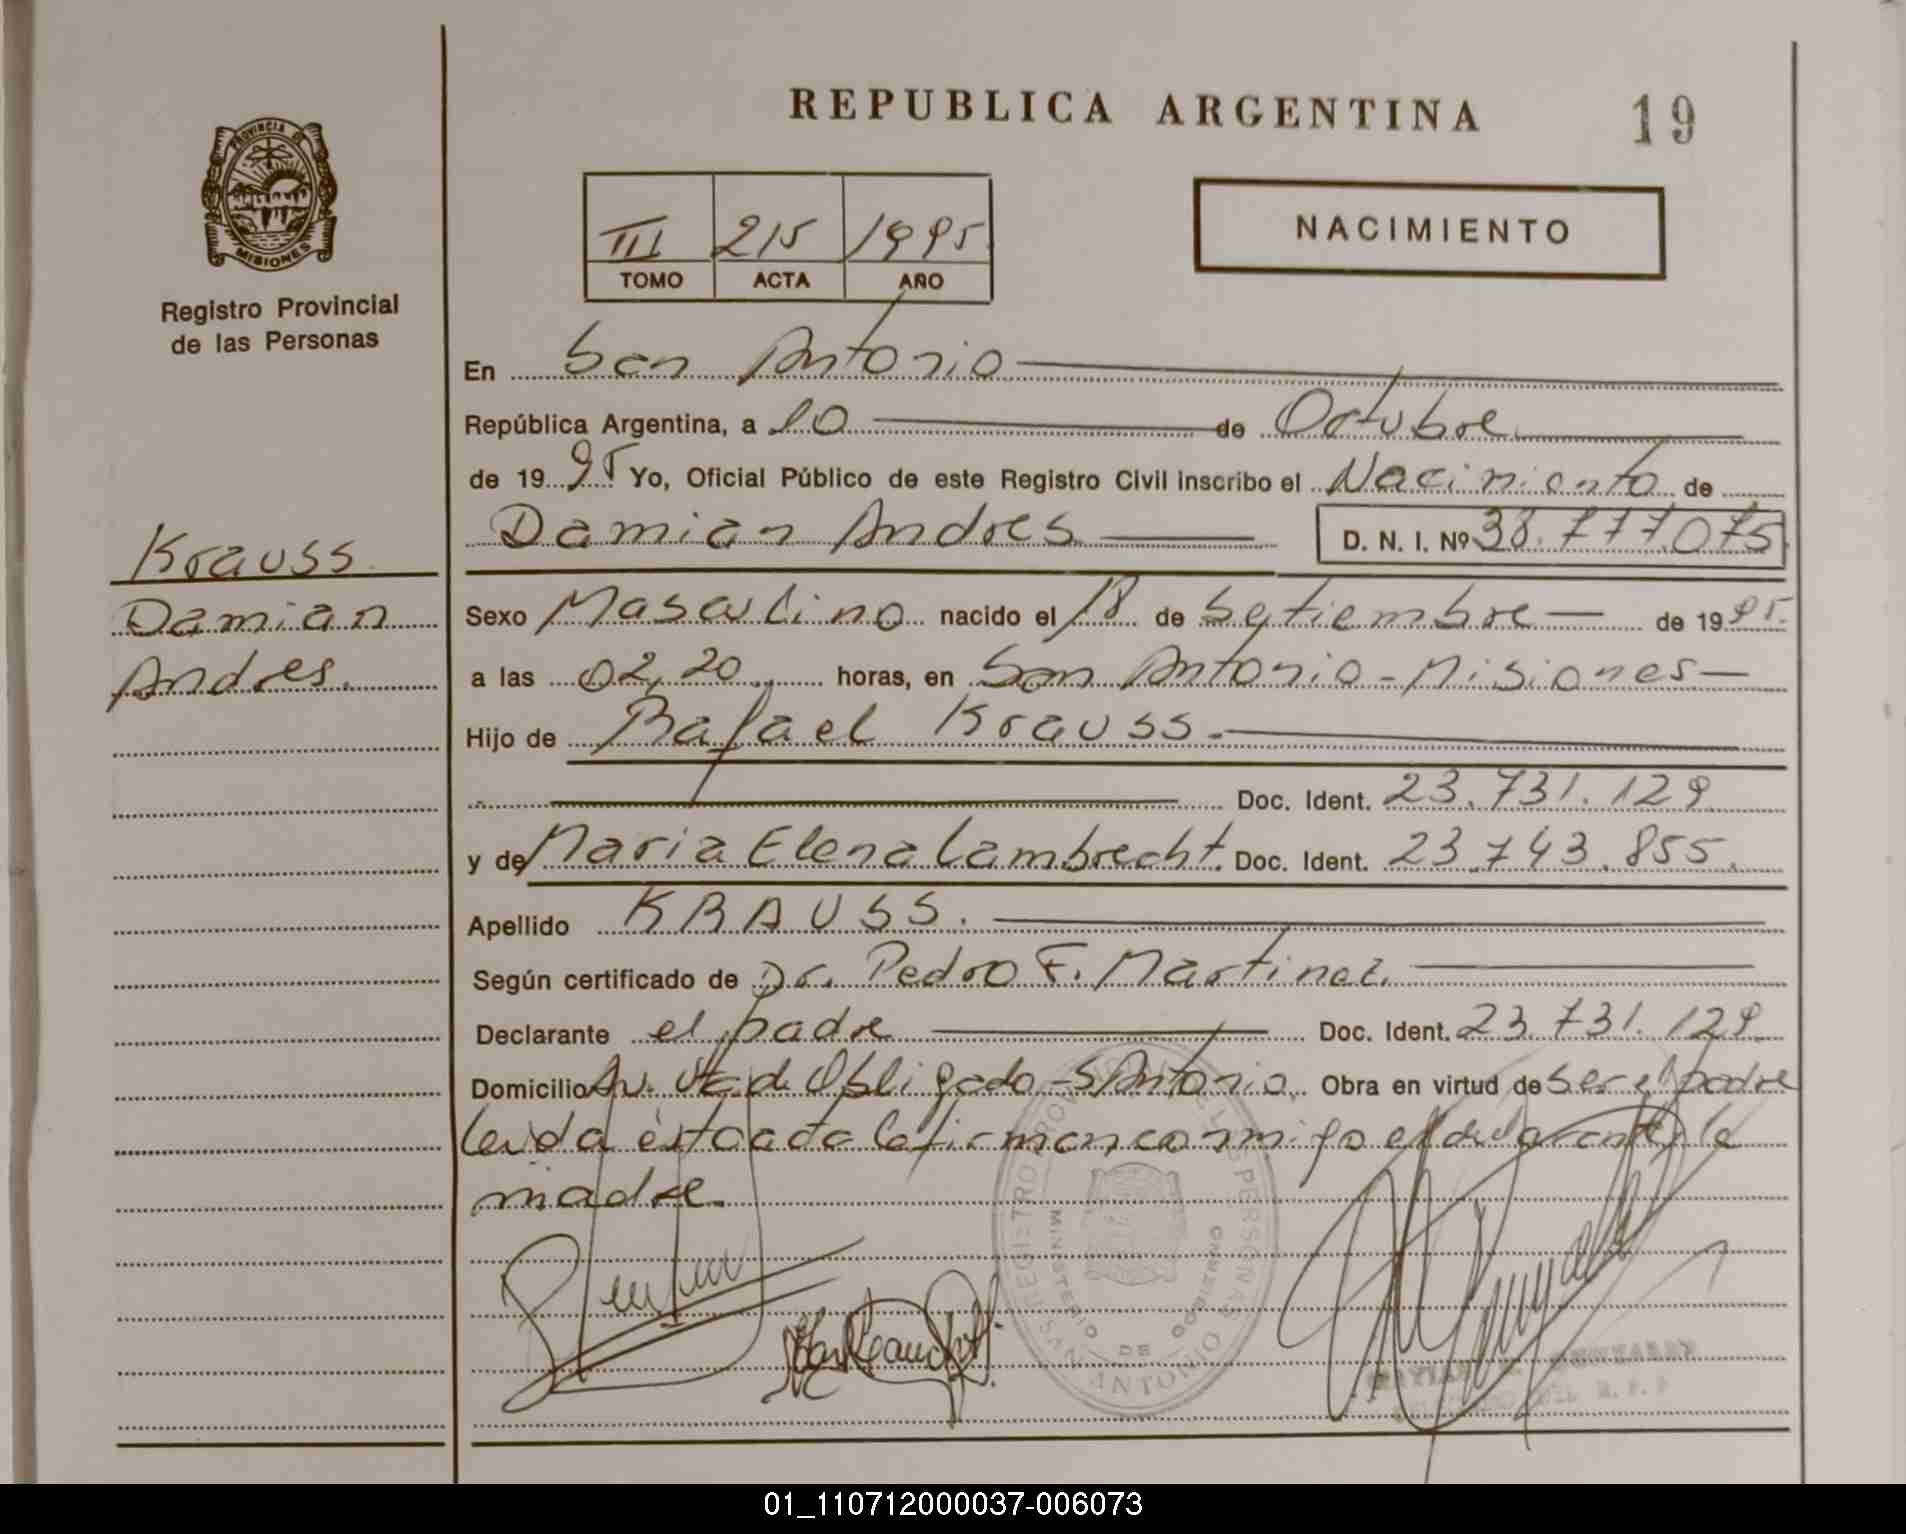 REPUBLICA ARGENTINA
19
PROVINCIA DE
MISIONES
Registro Provincial
de las Personas
III 215 1995
TOMO ACTA AÑO
NACIMIENTO
En San Antonio
República Argentina, a 10 de Octubre
de 1995 Yo, Oficial Público de este Registro Civil inscribo el Nacimiento de
Damian Andres D. N. I. Nº 38.777.075
Krauss
Damian
Andres.
Sexo Masculino nacido el 18 de Setiembre de 1995.
a las 02,20 horas, en San Antonio - Misiones
Hijo de Rafael Krauss.
Doc. Ident. 23.731.129
y de Maria Elena Lambrecht. Doc. Ident. 23.743.855.
Apellido KRAUSS.
Según certificado de Dr. Pedro F. Martinez.
Declarante el padre Doc. Ident. 23.731.129.
Domicilio Av. Obligado - S/Antonio. Obra en virtud de ser el padre
Leida ésta acta la firman conmigo el declarante y la
madre.
REGISTRO PROVINCIAL DE LAS PERSONAS
MINISTERIO DE GOBIERNO
SAN ANTONIO
01_110712000037-006073